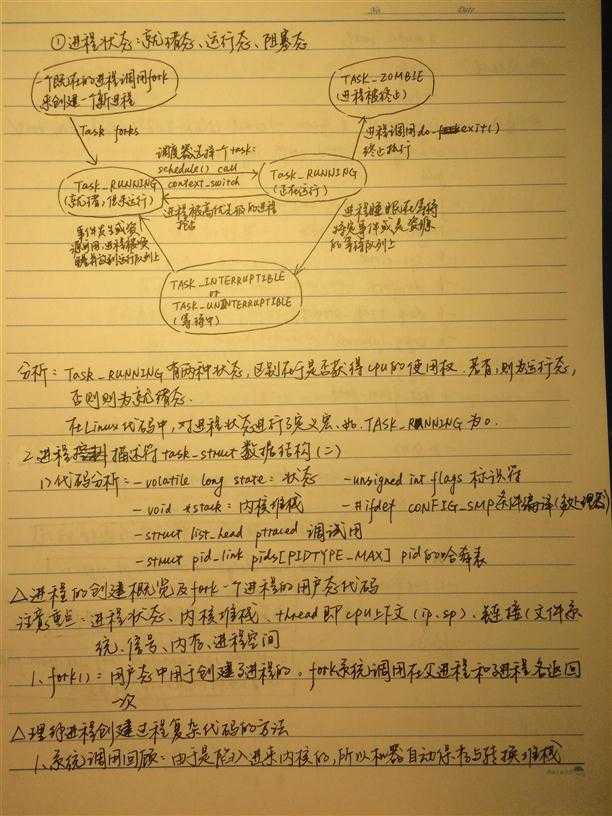 ①进程状态:就绪态、运行态、阻塞态
一个既存的进程调用fork
来创建一个新进程
TASK_ZOMBIE
(进程被终止)
Task forks
进程调用do_exit()
终止执行
调度器选择一个task:
schedule() call
context_switch
Task_RUNNING
(就绪,但未运行)
Task_RUNNING
(正在运行)
进程被高优先级的进程
抢占
事件发生或资
源可用,进程被唤
醒并放到运行队列上
进程睡眠在等待
特定事件或是资源
的等待队列上
TASK_INTERRUPTIBLE
or
TASK_UNINTERRUPTIBLE
(等待中)
分析:Task_RUNNING有两种状态,区别在于是否获得cpu的使用权.若有,则为运行态,
否则则为就绪态.
在Linux代码中,对进程状态进行了定义宏.如.TASK_RUNNING为0.
2.进程描述符task_struct数据结构(二)
1>代码分析:-volatile long state:状态 -unsigned int flags 标识符
-void *stack:内核堆栈 -#ifdef CONFIG_SMP条件编译(多处理器)
-struct list_head ptraced 调试用
-struct pid_link pids[PIDTYPE_MAX] pid的哈希表
△进程的创建概览及fork一个进程的用户态代码
注意重点:进程状态、内核堆栈、thread即cpu上下文(ip.sp)、链接(文件系
统、信号、内存、进程空间
1、fork():用户态中用于创建子进程的。fork系统调用在父进程和子进程各返回
一次
△理解进程创建过程复杂代码的方法
1.系统调用回顾:由于是陷入进来内核的,所以机器自动保存与转换堆栈